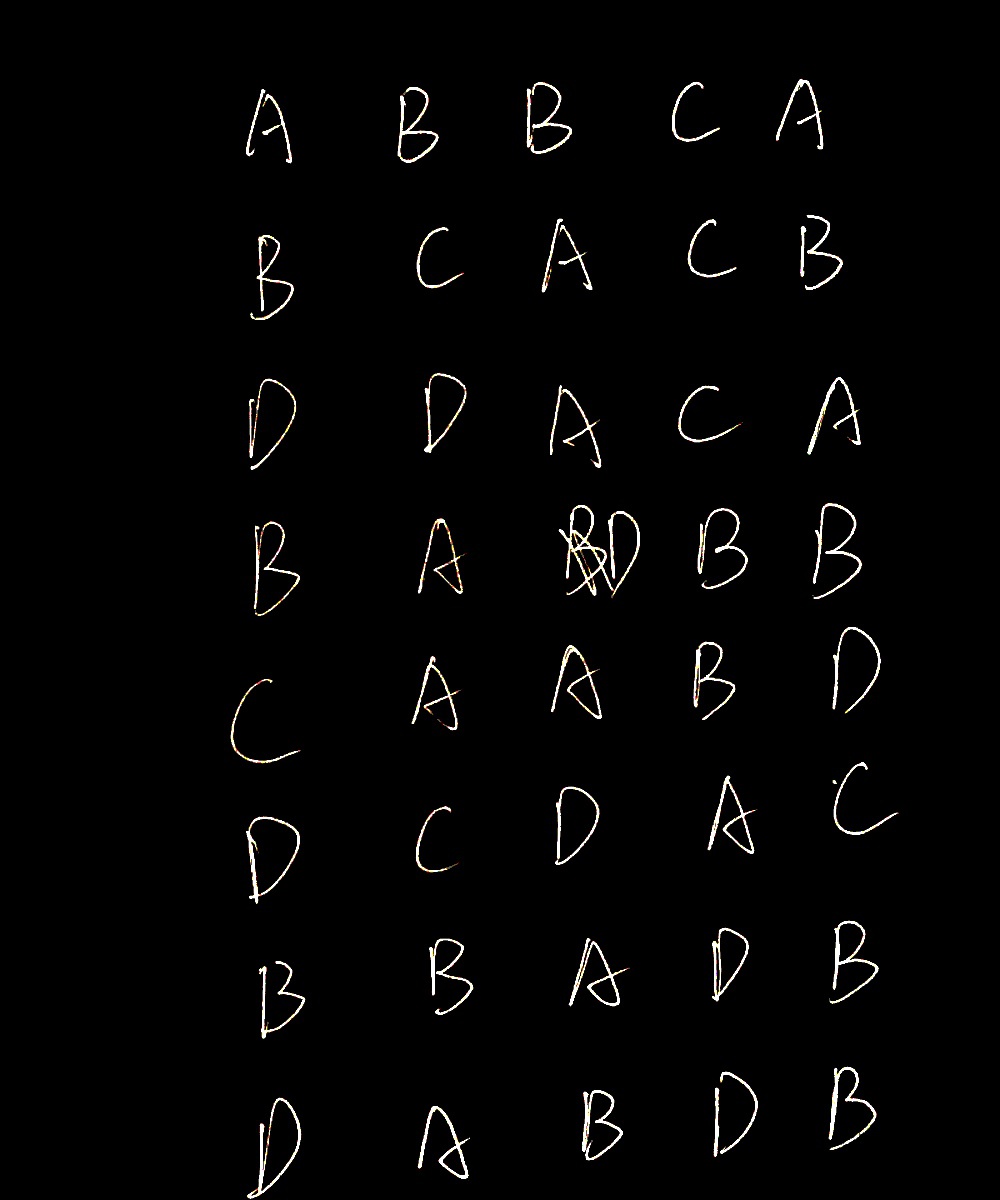 A B B C A
B C A C B
D D A C A
B A D B B
C A A B D
D C D A C
B B A D B
D A B D B